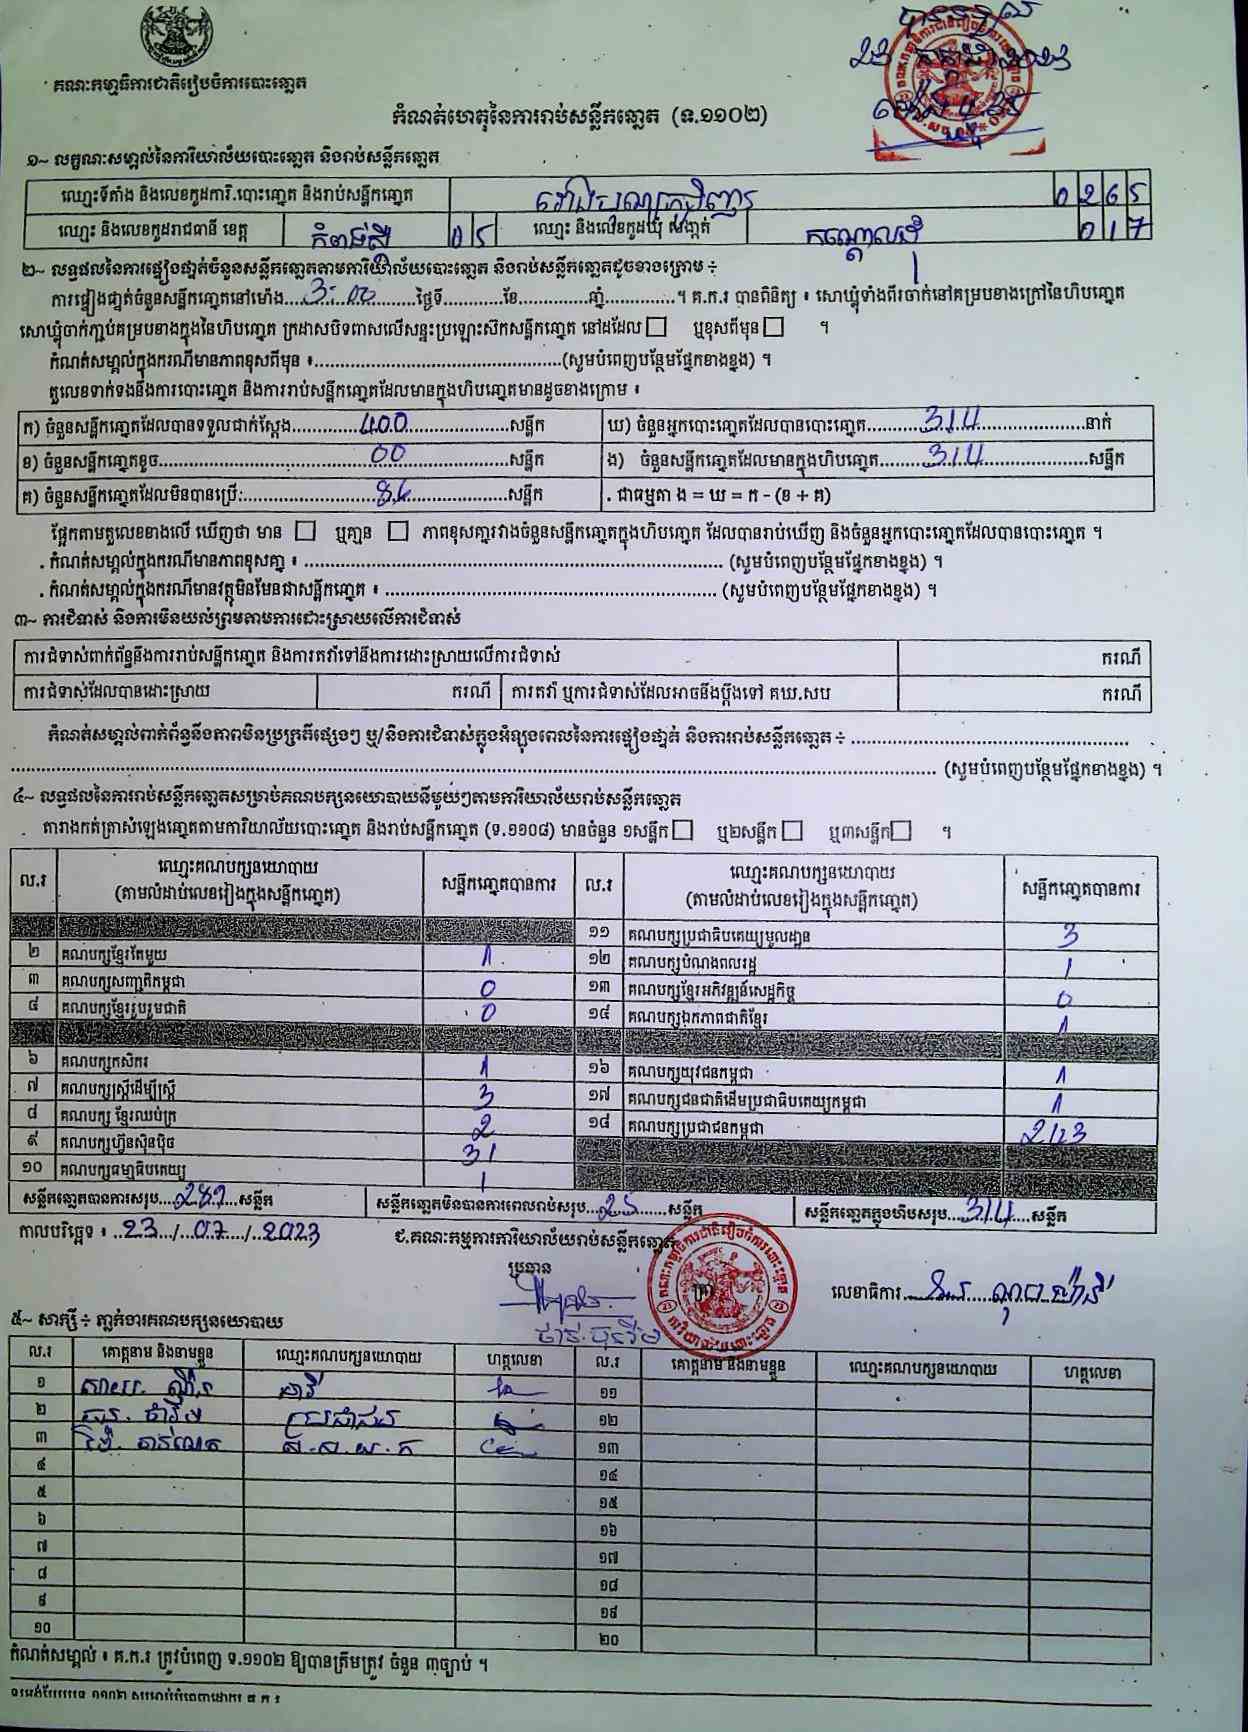 គណៈកម្មាធិការជាតិរៀបចំការបោះឆ្នោត
កំណត់ហេតុនៃការរាប់សន្លឹកឆ្នោត (ទ.១១០២)
១~ លក្ខណៈសម្គាល់នៃការិយាល័យបោះឆ្នោត និងរាប់សន្លឹកឆ្នោត
ឈ្មោះទីតាំង និងលេខកូដការិ.បោះឆ្នោត និងរាប់សន្លឹកឆ្នោត 0265
ឈ្មោះ និងលេខកូដរាជធានី ខេត្ត កំពង់ស្ពឺ 05 ឈ្មោះ និងលេខកូដឃុំ សង្កាត់ កណ្តោលដុំ 017
២~ លទ្ធផលនៃការផ្ទៀងផ្ទាត់ចំនួនសន្លឹកឆ្នោតតាមការិយាល័យបោះឆ្នោត និងរាប់សន្លឹកឆ្នោតដូចខាងក្រោម ÷
ការផ្ទៀងផ្ទាត់ចំនួនសន្លឹកឆ្នោតនៅម៉ោង...3:00...ថ្ងៃទី............ខែ..............ឆ្នាំ..............។ គ.ក.រ បានពិនិត្យ ៖ សោឃ្លុំទាំងពីរចាក់នៅគម្របខាងក្រៅនៃហិបឆ្នោត
សោឃ្លុំចាក់ភ្ជាប់គម្របខាងក្នុងនៃហិបឆ្នោត ក្រដាសបិទពាសលើសន្ទះប្រឡោះស៊កសន្លឹកឆ្នោត នៅដដែល ☐ ឬខុសពីមុន ☐ ។
កំណត់សម្គាល់ក្នុងករណីមានភាពខុសពីមុន ៖..................................................(សូមបំពេញបន្ថែមផ្នែកខាងខ្នង) ។
តួលេខទាក់ទងនឹងការបោះឆ្នោត និងការរាប់សន្លឹកឆ្នោតដែលមានក្នុងហិបឆ្នោតមានដូចខាងក្រោម ៖
ក) ចំនួនសន្លឹកឆ្នោតដែលបានទទួលជាក់ស្តែង.............400.............សន្លឹក ឃ) ចំនួនអ្នកបោះឆ្នោតដែលបានបោះឆ្នោត..........314..........នាក់
ខ) ចំនួនសន្លឹកឆ្នោតខូច.............00.............សន្លឹក ង) ចំនួនសន្លឹកឆ្នោតដែលមានក្នុងហិបឆ្នោត..........314..........សន្លឹក
គ) ចំនួនសន្លឹកឆ្នោតដែលមិនបានប្រើ:.............86.............សន្លឹក . ជាធម្មតា ង = ឃ = ក - (ខ + គ)
ផ្អែកតាមតួលេខខាងលើ ឃើញថា មាន ☐ ឬគ្មាន ☐ ភាពខុសគ្នារវាងចំនួនសន្លឹកឆ្នោតក្នុងហិបឆ្នោត ដែលបានរាប់ឃើញ និងចំនួនអ្នកបោះឆ្នោតដែលបានបោះឆ្នោត ។
. កំណត់សម្គាល់ក្នុងករណីមានភាពខុសគ្នា ៖ .................................................. (សូមបំពេញបន្ថែមផ្នែកខាងខ្នង) ។
. កំណត់សម្គាល់ក្នុងករណីមានវត្ថុមិនមែនជាសន្លឹកឆ្នោត ៖ .................................................. (សូមបំពេញបន្ថែមផ្នែកខាងខ្នង) ។
៣~ ការជំទាស់ និងការមិនយល់ព្រមតាមការដោះស្រាយលើការជំទាស់
ការជំទាស់ពាក់ព័ន្ធនឹងការរាប់សន្លឹកឆ្នោត និងការតវ៉ាទៅនឹងការដោះស្រាយលើការជំទាស់ ករណី
ការជំទាស់ដែលបានដោះស្រាយ ករណី ការតវ៉ា ឬការជំទាស់ដែលអាចនឹងប្តឹងទៅ គឃ.សប ករណី
កំណត់សម្គាល់ពាក់ព័ន្ធនឹងភាពមិនប្រក្រតីផ្សេងៗ ឬ/និងការជំទាស់ក្នុងអំឡុងពេលនៃការផ្ទៀងផ្ទាត់ និងការរាប់សន្លឹកឆ្នោត ÷ ..................................................
.................................................. (សូមបំពេញបន្ថែមផ្នែកខាងខ្នង) ។
៤~ លទ្ធផលនៃការរាប់សន្លឹកឆ្នោតសម្រាប់គណបក្សនយោបាយនីមួយៗតាមការិយាល័យរាប់សន្លឹកឆ្នោត
តារាងកត់ត្រាសំឡេងឆ្នោតតាមការិយាល័យបោះឆ្នោត និងរាប់សន្លឹកឆ្នោត (ទ.១១០៨) មានចំនួន ១សន្លឹក ☐ ឬ២សន្លឹក ☐ ឬ៣សន្លឹក ☐ ។
ល.រ ឈ្មោះគណបក្សនយោបាយ (តាមលំដាប់លេខរៀងក្នុងសន្លឹកឆ្នោត) សន្លឹកឆ្នោតបានការ ល.រ ឈ្មោះគណបក្សនយោបាយ (តាមលំដាប់លេខរៀងក្នុងសន្លឹកឆ្នោត) សន្លឹកឆ្នោតបានការ
១១ គណបក្សប្រជាធិបតេយ្យមូលដ្ឋាន 3
២ គណបក្សខ្មែរតែមួយ 1 ១២ គណបក្សបំណងពលរដ្ឋ 1
៣ គណបក្សសញ្ជាតិកម្ពុជា 0 ១៣ គណបក្សខ្មែរអភិវឌ្ឍន៍សេដ្ឋកិច្ច 0
៤ គណបក្សខ្មែររួបរួមជាតិ 0 ១៤ គណបក្សឯកភាពជាតិខ្មែរ 1
៦ គណបក្សកសិករ 1 ១៦ គណបក្សយុវជនកម្ពុជា 1
៧ គណបក្សស្ត្រីដើម្បីស្ត្រី 3 ១៧ គណបក្សជនជាតិដើមប្រជាធិបតេយ្យកម្ពុជា 1
៨ គណបក្ស ខ្មែរឈប់ក្រ 2 ១៨ គណបក្សប្រជាជនកម្ពុជា 243
៩ គណបក្សហ៊្វុនស៊ិនប៉ិច 31
១០ គណបក្សធម្មាធិបតេយ្យ 1
សន្លឹកឆ្នោតបានការសរុប...289...សន្លឹក សន្លឹកឆ្នោតមិនបានការពេលរាប់សរុប...25......សន្លឹក សន្លឹកឆ្នោតក្នុងហិបសរុប...314....សន្លឹក
កាលបរិច្ឆេទ ៖ ..23../..07../..2023
ជ.គណៈកម្មការការិយាល័យរាប់សន្លឹកឆ្នោត
ប្រធាន
លេខាធិការ
៥~ សាក្សី ÷ ភ្នាក់ងារគណបក្សនយោបាយ
ល.រ គោត្តនាម និងនាមខ្លួន ឈ្មោះគណបក្សនយោបាយ ហត្ថលេខា ល.រ គោត្តនាម និងនាមខ្លួន ឈ្មោះគណបក្សនយោបាយ ហត្ថលេខា
១ ១១
២ ប្រជាជន ១២
៣ ១៣
៤ ១៤
៥ ១៥
៦ ១៦
៧ ១៧
៨ ១៨
៩ ១៩
១០ ២០
កំណត់សម្គាល់ ៖ គ.ក.រ ត្រូវបំពេញ ទ.១១០២ ឱ្យបានត្រឹមត្រូវ ចំនួន ៣ច្បាប់ ។